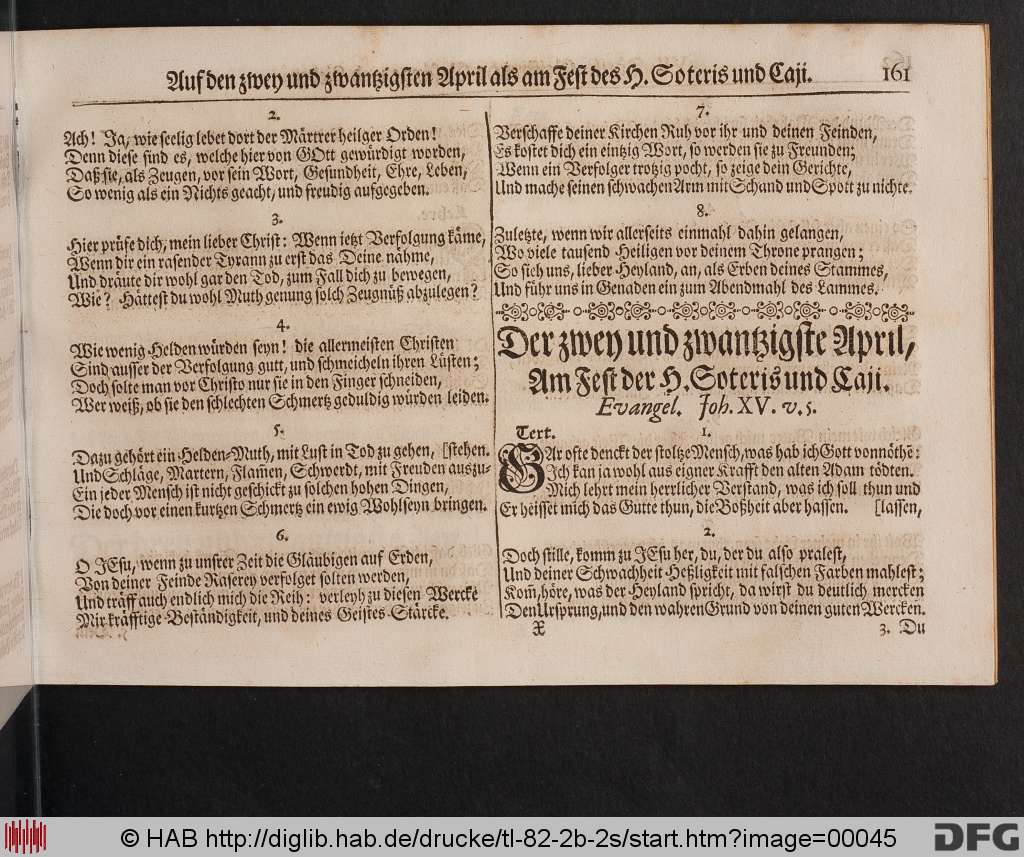 Auf den zwey und zwantzigsten April als am Fest des H. Soteris und Caji. 161
2.
Ach! Ja, wie seelig lebet dort der Märtrer heilger Orden!
Denn diese sind es, welche hier von GOtt gewürdigt worden,
Daß sie, als Zeugen, vor sein Wort, Gesundheit, Ehre, Leben,
So wenig als ein Nichts geacht, und freudig aufgegeben.
3.
Hier prüfe dich, mein lieber Christ: Wenn ietzt Verfolgung käme,
Wenn dir ein rasender Tyrann zu erst das Deine nähme,
Und dräute dir wohl gar den Tod, zum Fall dich zu bewegen,
Wie? Hättest du wohl Muth genung solch Zeugnüß abzulegen?
4.
Wie wenig Helden würden seyn! die allermeisten Christen
Sind ausser der Verfolgung gutt, und schmeicheln ihren Lüsten;
Doch solte man vor Christo nur sie in den Finger schneiden,
Wer weiß, ob sie den schlechten Schmertz geduldig würden leiden.
5.
Dazu gehört ein Helden-Muth, mit Lust in Tod zu gehen, [stehen.
Und Schläge, Martern, Flam̃en, Schwerdt, mit Freuden auszu-
Ein jeder Mensch ist nicht geschickt zu solchen hohen Dingen,
Die doch vor einen kurtzen Schmertz ein ewig Wohlseyn bringen.
6.
O JEsu, wenn zu unsrer Zeit die Gläubigen auf Erden,
Von deiner Feinde Raserey verfolget solten werden,
Und träff auch endlich mich die Reih: verleyh zu diesen Wercke
Mir kräfftige Beständigkeit, und deines Geistes Stärcke.
7.
Verschaffe deiner Kirchen Ruh vor ihr und deinen Feinden,
Es kostet dich ein eintzig Wort, so werden sie zu Freunden;
Wenn ein Verfolger trotzig pocht, so zeige dein Gerichte,
Und mache seinen schwachen Arm mit Schand und Spott zu nichte.
8.
Zuletzte, wenn wir allerseits einmahl dahin gelangen,
Wo viele tausend Heiligen vor deinem Throne prangen;
So sieh uns, lieber Heyland, an, als Erben deines Stammes,
Und führ uns in Genaden ein zum Abendmahl des Lammes.
Der zwey und zwantzigste April,
Am Fest der H. Soteris und Caji.
Evangel. Joh. XV. v. 5.
Text. 1.
GAr ofte denckt der stoltze Mensch, was hab ich Gott vonnöthē:
Ich kan ja wohl aus eigner Krafft den alten Adam tödten.
Mich lehrt mein herrlicher Verstand, was ich soll thun und
Er heisset mich das Gutte thun, die Boßheit aber hassen. [lassen,
2.
Doch stille, komm zu JEsu her, du, der du also pralest,
Und deiner Schwachheit Heßligkeit mit falschen Farben mahlest;
Kom̃, höre, was der Heyland spricht, da wirst du deutlich mercken
Den Ursprung, und den wahren Grund von deinen guten Wercken.
X 3. Du
© HAB http://diglib.hab.de/drucke/tl-82-2b-2s/start.htm?image=00045
DFG